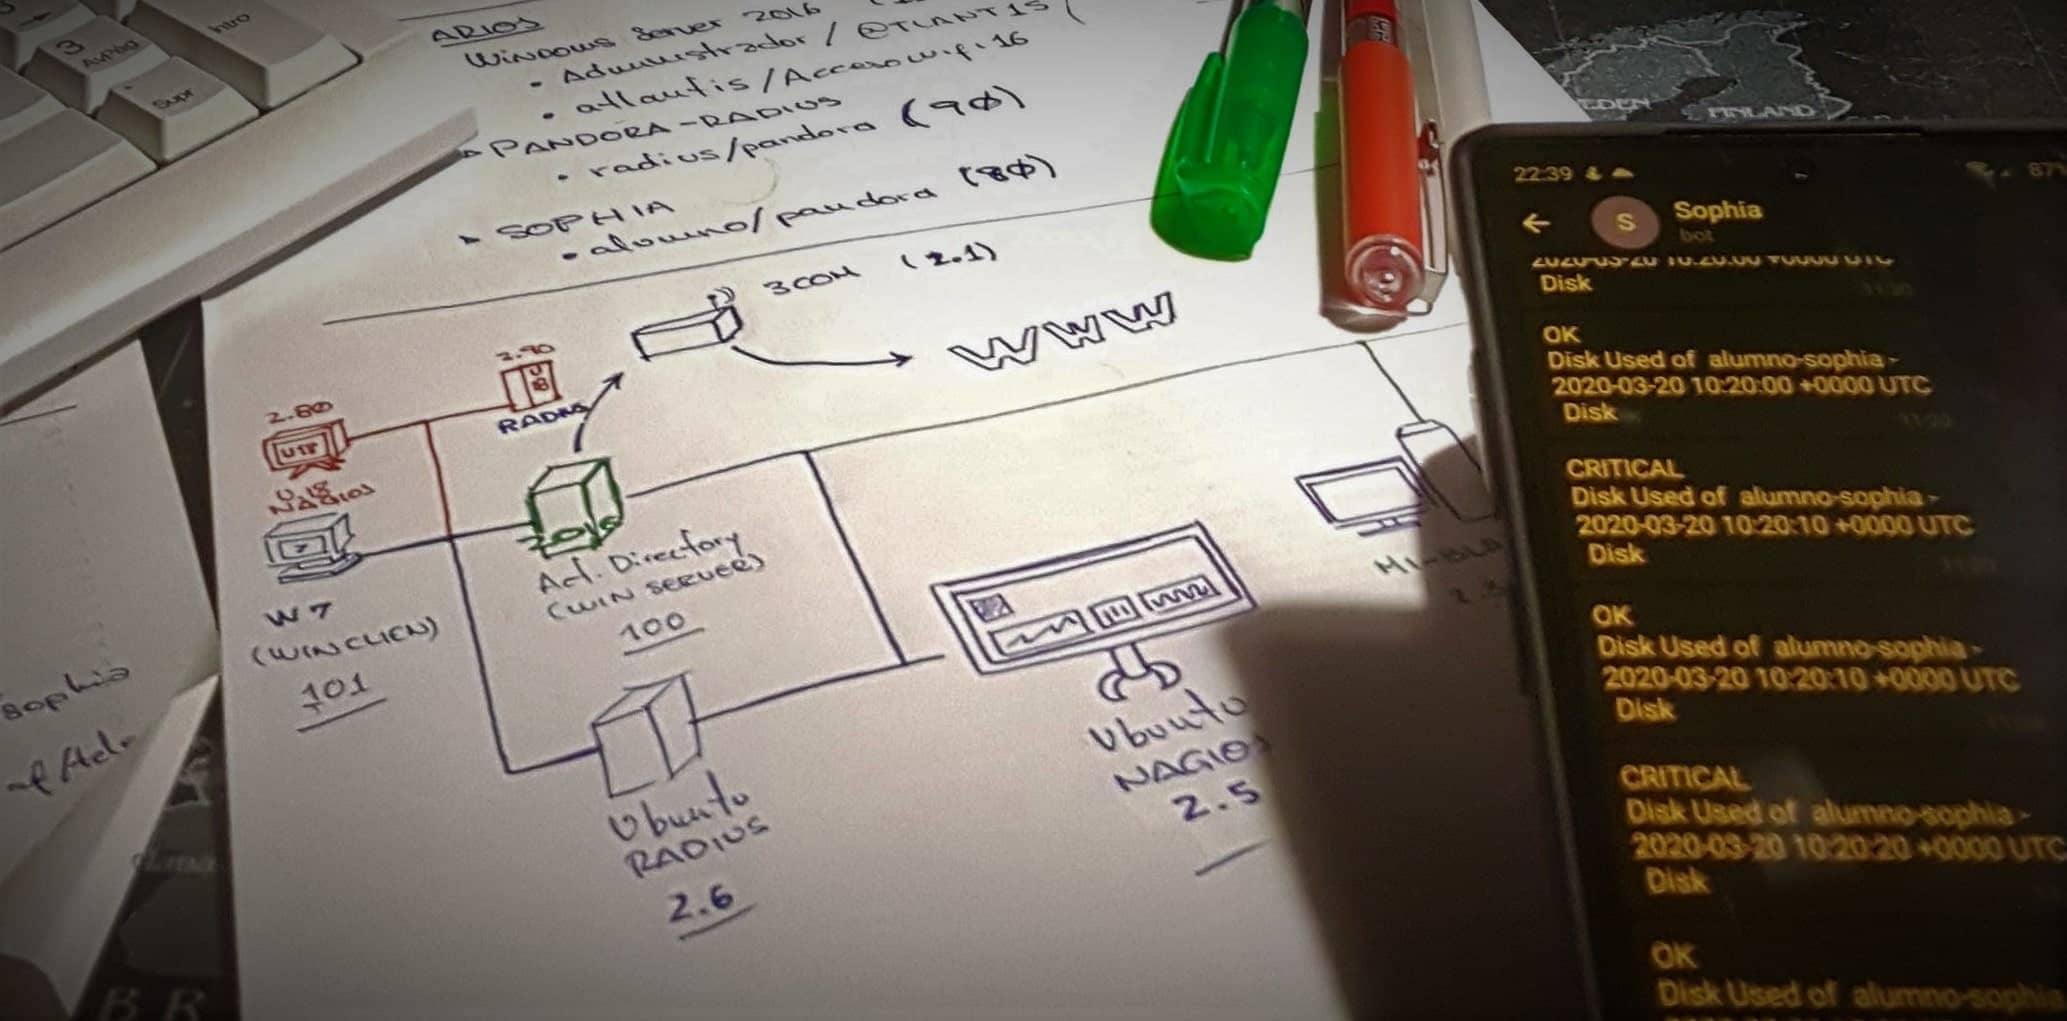 3
AvPág
Intro
Supr
ARIOS
Windows Server 2016
• Administrador / @TLANT1S (
• atlantis/Accesowifi16
PANDORA-RADIUS
• radius/pandora (9Ø)
SOPHIA
• alumno/pandora (8Ø)
3COM (2.1)
WWW
2.90
U18
RADIUS
2.80
U18
U18
NAGIOS
7
W7
(WINCLIEN)
101
2016
Act. Directory
(WIN SERVER)
100
Ubuntu
RADIUS
2.6
Ubuntu
NAGIOS
2.5
Sophia
EDEN
FINLAND
B R
22:39
87%
S
Sophia
bot
2020-03-20 10:20:00 +0000 UTC
Disk
11:20
OK
Disk Used of alumno-sophia -
2020-03-20 10:20:00 +0000 UTC
Disk
11:20
CRITICAL
Disk Used of alumno-sophia -
2020-03-20 10:20:10 +0000 UTC
Disk
OK
Disk Used of alumno-sophia -
2020-03-20 10:20:10 +0000 UTC
Disk
CRITICAL
Disk Used of alumno-sophia -
2020-03-20 10:20:20 +0000 UTC
Disk
OK
Disk Used of alumno-sophia